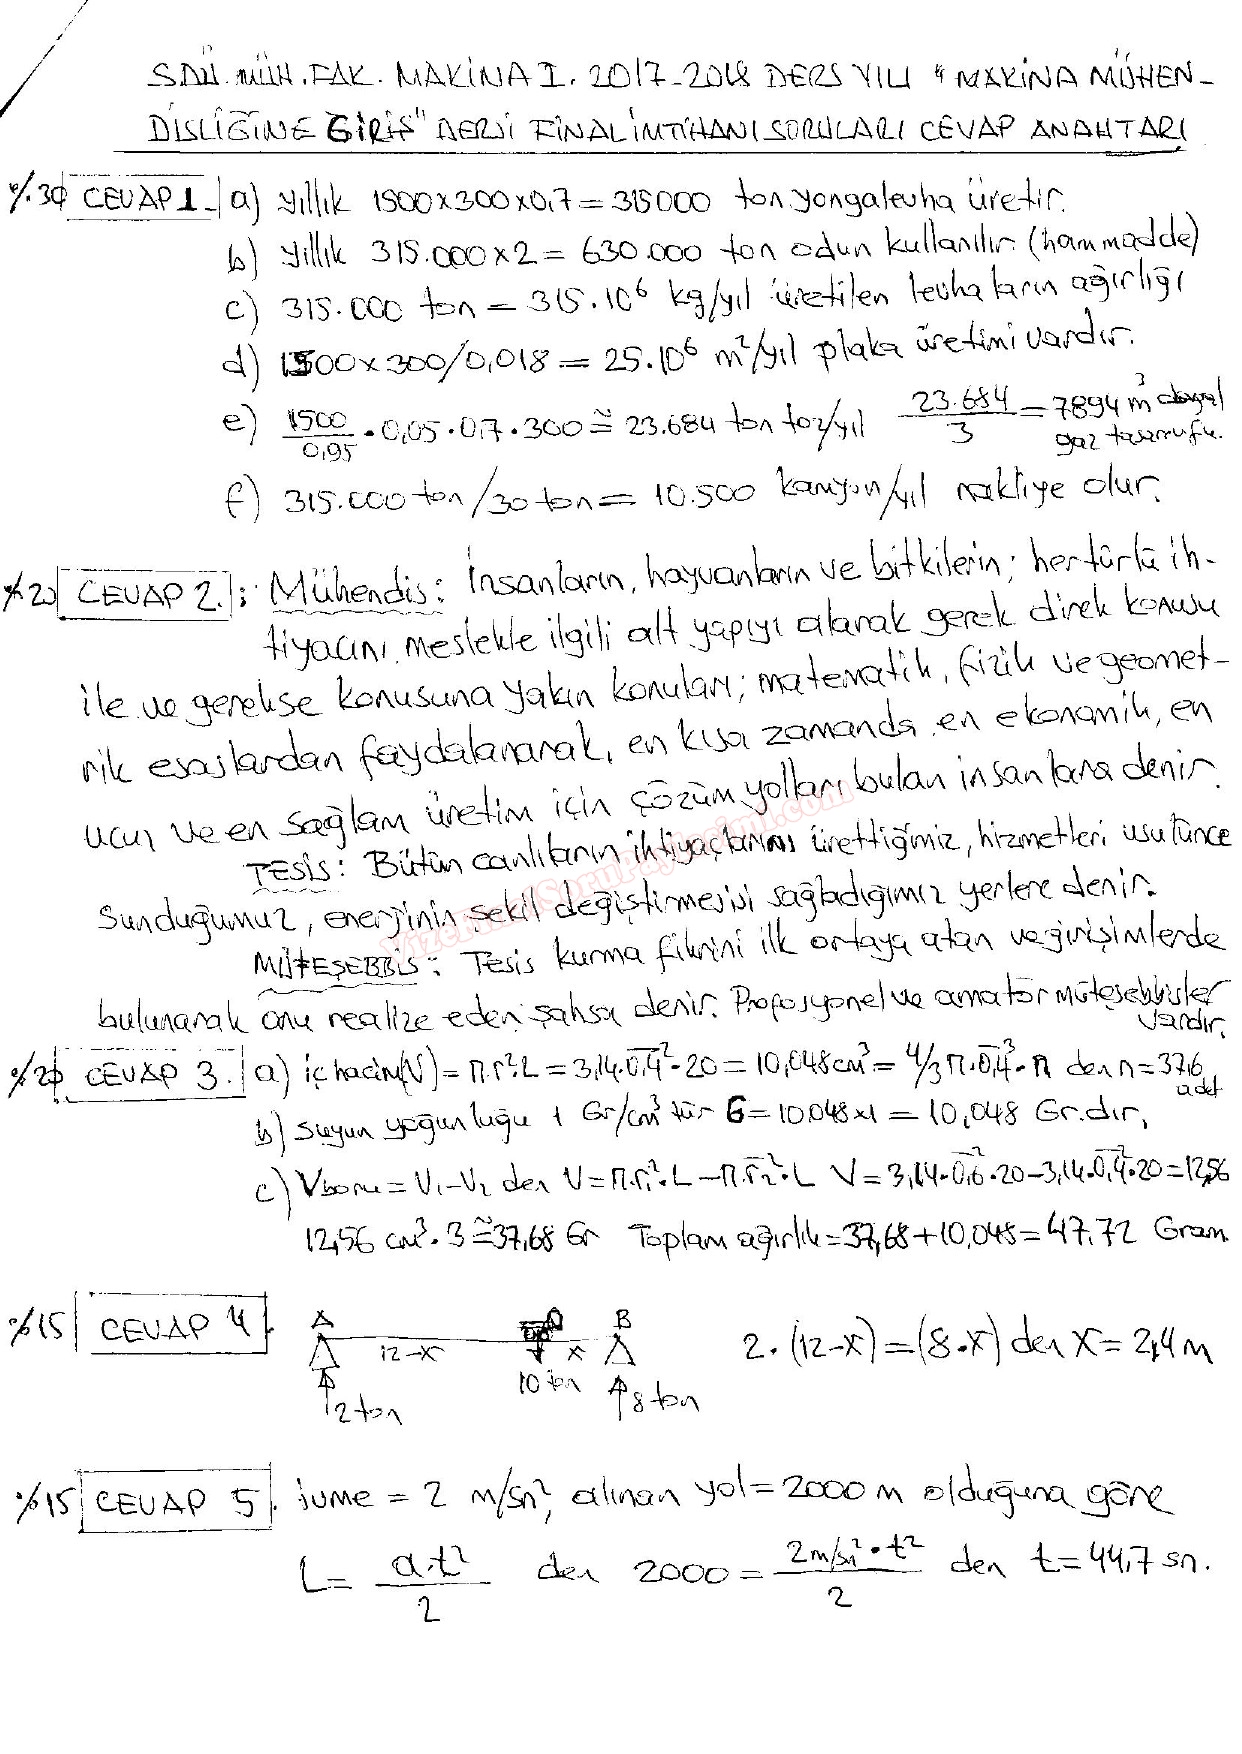 SDÜ. MÜH. FAK. MAKİNA I. 2017-2018 DERS YILI "MAKİNA MÜHEN-
DİSLİĞİNE GİRİŞ" DERSİ FİNAL İMTİHANI SORULARI CEVAP ANAHTARI
%30 CEVAP 1 - a) yıllık 1500x300x0,7 = 315000 ton yongalevha üretir.
b) yıllık 315.000x2 = 630.000 ton odun kullanılır (hammadde)
c) 315.000 ton = 315.10⁶ kg/yıl üretilen levhaların ağırlığı
d) 1500x300/0,018 = 25.10⁶ m²/yıl plaka üretimi vardır.
e) 1500/0,95 . 0,05 . 0,7 . 300 ≅ 23.684 ton toz/yıl 23.684/3 = 7894 m³ doğal
gaz tasarrufu.
f) 315.000 ton/30 ton = 10.500 kamyon/yıl nakliye olur.
%20 CEVAP 2. : Mühendis: İnsanların, hayvanların ve bitkilerin; hertürlü ih-
tiyacını meslekle ilgili alt yapıyı alarak gerek direk konusu
ile ve gerekse konusuna yakın konuları; matematik, fizik ve geomet-
rik esaslardan faydalanarak, en kısa zamanda en ekonomik, en
ucuz ve en sağlam üretim için çözüm yolları bulan insanlara denir.
TESİS: Bütün canlıların ihtiyaçlarını ürettiğimiz, hizmetleri usulünce
sunduğumuz, enerjinin şekil değiştirmesini sağladığımız yerlere denir.
MÜTEŞEBBİS: Tesis kurma fikrini ilk ortaya atan ve girişimlerde
bulunarak onu realize eden şahsa denir. Profosyonel ve amatör müteşebbisler
vardır.
%20 CEVAP 3. a) iç hacim(V) = π.r².L = 3,14.0,4².20 = 10,048 cm³ = 4/3 π.0,4³.n den n = 37,6
adet
b) Suyun yoğunluğu 1 Gr/cm³ tür G = 10.048x1 = 10,048 Gr.dır.
c) Vboru = V₁-V₂ den V = π.r₁².L - π.r₂².L V = 3,14.0,6².20 - 3,14.0,4².20 = 12,56
12,56 cm³.3 ≅ 37,68 Gr Toplam ağırlık = 37,68+10,048 = 47.72 Gram
%15 CEVAP 4. A B 2.(12-x) = (8.x) den x = 2,4 m
12-x x
10 ton
2 ton 8 ton
%15 CEVAP 5. ivme = 2 m/sn², alınan yol = 2000 m olduğuna göre
L = a.t²/2 den 2000 = 2m/sn².t²/2 den t = 44,7 sn.
VizeFinalSoruPaylasimi.com